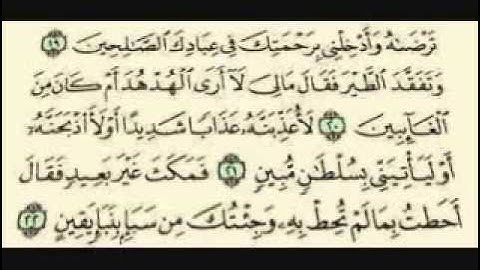 تَرْضَىٰهُ وَأَدْخِلْنِي بِرَحْمَتِكَ فِي عِبَادِكَ ٱلصَّـٰلِحِينَ ١٩
وَتَفَقَّدَ ٱلطَّيْرَ فَقَالَ مَالِيَ لَآ أَرَى ٱلْهُدْهُدَ أَمْ كَانَ مِنَ
ٱلْغَآئِبِينَ ٢٠ لَأُعَذِّبَنَّهُۥ عَذَابًا شَدِيدًا أَوْ لَأَاْذْبَحَنَّهُۥٓ
أَوْ لَيَأْتِيَنِّي بِسُلْطَـٰنٍ مُّبِينٍ ٢١ فَمَكَثَ غَيْرَ بَعِيدٍ فَقَالَ
أَحَطتُ بِمَا لَمْ تُحِطْ بِهِۦ وَجِئْتُكَ مِن سَبَإٍۭ بِنَبَإٍ يَقِينٍ ٢٢